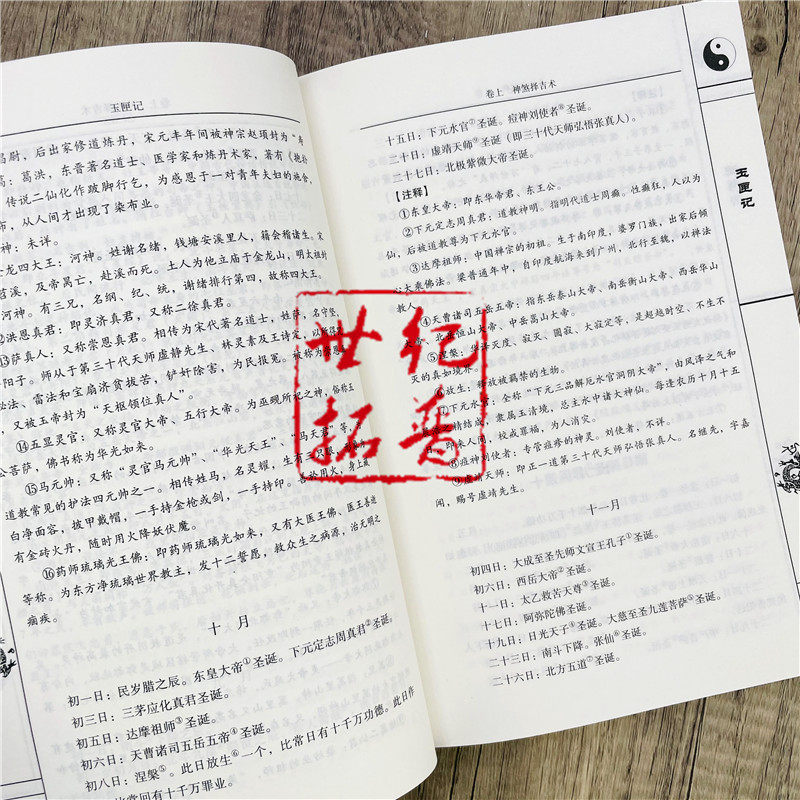 玉匣记
昌尉，后出家修道炼丹，宋元丰年间被神宗赵顼封为“寿
葛洪，东晋著名道士、医学家和炼丹术家，著有《抱朴
传说二仙化作跛脚行乞，为感恩于一对青年夫妇的施舍，
布，从人间才出现了染布业。
神：未详。
龙四大王：河神。姓谢名绪，钱塘安溪里人，籍会稽诸生。宋
苕溪，及帝昺亡，赴溪而死。土人为他立庙于金龙山，明太祖封
河神。有三兄，名纲、纪、统，谢绪排行第四，故称四大王。
⑫洪恩真君：即灵济真君，又称二徐真君。
⑬萨真人：又称崇恩真君。相传为宋代著名道士，姓萨，名守坚，
阳子。师从于第三十代天师虚静先生、林灵素及王诗定，以所得
秘法、雷法和宝扇济贫拔苦，铲奸除害，为民报冤。被称为崇恩
，又被玉帝封为“天枢领位真人”。
⑭五显灵官：又称灵官大帝、五行大帝。为巫觋所祀之神，俗称五
公菩萨，佛书称为华光如来。
⑮马元帅：又称“灵官马元帅”、“华光天王”、“马天君”等，
道教常见的护法四元帅之一。相传姓马，名灵耀，生有三只眼，
白净面容，披甲戴帽，一手持金枪或剑，一手持印。善於用火，身上藏
有金砖火丹，随时用火降妖伏魔。
⑯药师琉璃光王佛：即药师琉璃光如来，又有大医王佛、医王善逝
等称。为东方净琉璃世界教主，发十二誓愿，救众生之病源，治无明之
痼疾。
十月
初一日：民岁腊之辰。东皇大帝①圣诞。下元定志周真君②圣诞。
初三日：三茅应化真君圣诞。
初五日：达摩祖师③圣诞。
初六日：天曹诸司五岳五帝④圣诞。
初八日：涅槃⑤。此日放生⑥一个，比常日有十千万功德。此日作
比常回有十千万罪业。
卷上 神煞择吉术
十五日：下元水官⑦圣诞。痘神刘使者⑧圣诞。
二十日：虚靖天师⑨圣诞（即三十代天师弘悟张真人）。
二十七日：北极紫微大帝圣诞。
【注释】
①东皇大帝：即东华帝君、东王公。
②下元定志周真君：道教神明。指明代道士周癫。性癫狂，人以为
仙，后被道教尊为下元水官。
③达摩祖师：中国禅宗的初祖。生于南印度，婆罗门族，出家后倾
大乘佛法。梁普通年中，自印度航海来到广州，北行至魏，以禅法
教人。
④天曹诸司五岳五帝：指东岳泰山大帝、南岳衡山大帝、西岳华山
大帝、北岳恒山大帝、中岳嵩山大帝。
⑤涅槃：华译灭度、寂灭、圆寂、大寂定等，是超越时空、不生不
灭的真如境界。
⑥放生：释放被羁禁的生物。
⑦下元水官：全称“下元三品解厄水官洞阴大帝”，由风泽之气和
之精结成，隶属玉清境，总主水中诸大神仙。每逢农历十月十五
来人间，校戒罪福，为人消灾。
⑧痘神刘使者：专管痘疹的神灵。刘使者，不详。
⑨虚靖天师：即正一道第三十代天师弘悟张真人。名继先，字嘉
闻，赐号虚靖先生。
十一月
初四日：大成至圣先师文宣王孔子①圣诞。
初六日：西岳大帝②圣诞。
十一日：太乙救苦天尊③圣诞。
十七日：阿弥陀佛圣诞。
十九日：日光天子④圣诞。大慈至圣九莲菩萨⑤圣诞。
二十三日：南斗下降。张仙⑥圣诞。
二十六日：北方五道⑦圣诞。
玉匣记
世纪
拓普